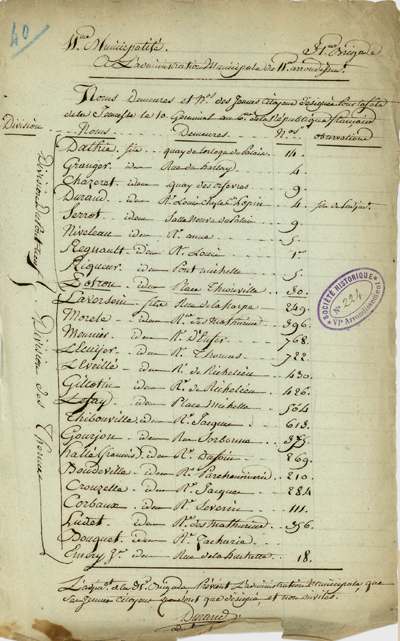 40
11.me Municipalité. 31.e Brigade
A L'administration Municipale du 11.e arrondissem.t
Noms Demeures et N.os des Jeunes Citoyens désignés pour la fête
de la Jeunesse le 10 Germinal an 6.e de la République française
Division Noms Demeures. N.os observations
Division du Pont neuf
Dathis fils quay de l'orloge du Palais 14.
Granger idem Rue du harlay 4.
Chazeret idem quay des orfevres 9.
Durand idem R. Louis 4. fils de
Serrot idem Salle Neuve du Palais 9.
Niveleau idem R. anne 5.
Regnault idem R. Louis 1er
Rigueur idem Pont michelle 5.
idem Place Thionville 30.
Division des Thermes
Laversein fils Rue de la harpe 249.
Morele idem R. des mathurins 396.
Meunier idem R. D'Enfer 768.
idem R. Thomas 722.
L'Eveillé idem R. de Richelieu 430.
Gillotin idem R. de Richelieu 426.
Lefay idem Place Michelle 564
Thibouville idem R. Jacques 613.
Gourjon idem Rue Sorbonne
hallé idem R. 269.
Boudeville idem R. Parcheminerie 210.
Crouzelle idem R. Jacques 284
Corbaux idem R. Severin 111.
Ludet idem R. des Mathurins 356.
Bouquet idem R. Zacharie
Emery J.e idem Rue de la huchette 18.
de la 31.e Brigade Prévient L'administration Municipale, que
Les Jeunes citoyens ne sont que désignés, et non invités.
Durand
SOCIÉTÉ HISTORIQUE
N° 224
VIe Arrondissement